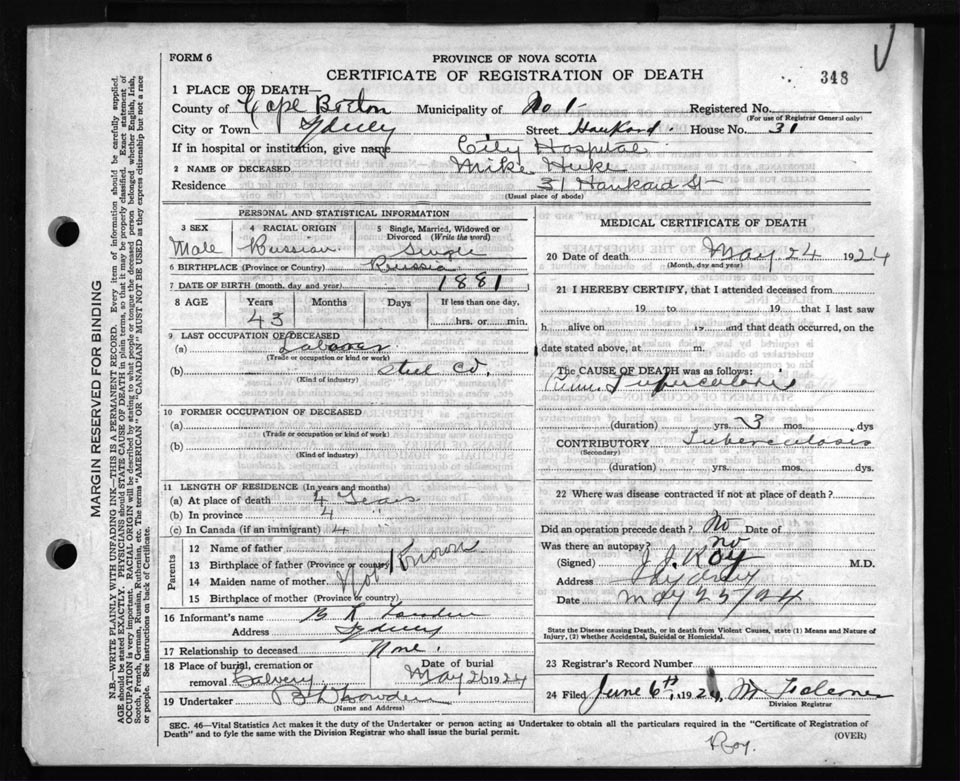 348
FORM 6
PROVINCE OF NOVA SCOTIA
CERTIFICATE OF REGISTRATION OF DEATH
1 PLACE OF DEATH—
County of Cape Breton Municipality of No 1 Registered No.
(For use of Registrar General only)
City or Town Sydney Street House No. 31
If in hospital or institution, give name City Hospital
2 NAME OF DECEASED Mike Huke
Residence 31 St
(Usual place of abode)
PERSONAL AND STATISTICAL INFORMATION
3 SEX Male
4 RACIAL ORIGIN Russian
5 Single, Married, Widowed or Divorced (Write the word) Single
6 BIRTHPLACE (Province or Country) Russia
7 DATE OF BIRTH (month, day and year) 1881
8 AGE Years Months Days If less than one day,
43 hrs. or min.
9 LAST OCCUPATION OF DECEASED
(a) Laborer
(Trade or occupation or kind of work)
(b) Steel Co.
(Kind of industry)
10 FORMER OCCUPATION OF DECEASED
(a)
(Trade or occupation or kind of work)
(b)
(Kind of industry)
11 LENGTH OF RESIDENCE (In years and months)
(a) At place of death 4 Years
(b) In province 4 "
(c) In Canada (if an immigrant) 4
Parents
12 Name of father
13 Birthplace of father (Province or country)
14 Maiden name of mother Not Known
15 Birthplace of mother (Province or country)
16 Informant's name
Address Sydney
17 Relationship to deceased None.
18 Place of burial, cremation or removal Calvery
Date of burial May 26 1924
19 Undertaker
(Name and Address)
MEDICAL CERTIFICATE OF DEATH
20 Date of death May 24 1924
(Month, day and year)
21 I HEREBY CERTIFY, that I attended deceased from
19 to 19 that I last saw
h alive on 19 and that death occurred, on the
date stated above, at m.
The CAUSE OF DEATH was as follows:
Tuberculosis
(duration) yrs. 3 mos. dys
CONTRIBUTORY Tuberculosis
(Secondary)
(duration) yrs. mos. dys.
22 Where was disease contracted if not at place of death?
Did an operation precede death? No Date of
Was there an autopsy? no
(Signed) J. J. Roy M.D.
Address Sydney
Date May 25/24
State the Disease causing Death, or in death from Violent Causes, state (1) Means and Nature of
Injury, (2) whether Accidental, Suicidal or Homicidal.
23 Registrar's Record Number
24 Filed June 6th, 1924,
Division Registrar
SEC. 46—Vital Statistics Act makes it the duty of the Undertaker or person acting as Undertaker to obtain all the particulars required in the "Certificate of Registration of
Death" and to fyle the same with the Division Registrar who shall issue the burial permit.
(OVER)
Roy.
MARGIN RESERVED FOR BINDING
N.B.—WRITE PLAINLY WITH UNFADING INK—THIS IS A PERMANENT RECORD. Every item of information should be carefully supplied.
AGE should be stated EXACTLY. PHYSICIANS should STATE CAUSE OF DEATH in plain terms, so that it may be properly classified. Exact statement of
OCCUPATION is very important. RACIAL ORIGIN will be described by stating to what people or tongue the deceased person belonged whether English, Irish,
Scotch, French, German, Russian, Ruthenian, etc. The terms "AMERICAN" or "CANADIAN" MUST NOT BE USED as they express citizenship but not a race
or people. See instructions on back of Certificate.